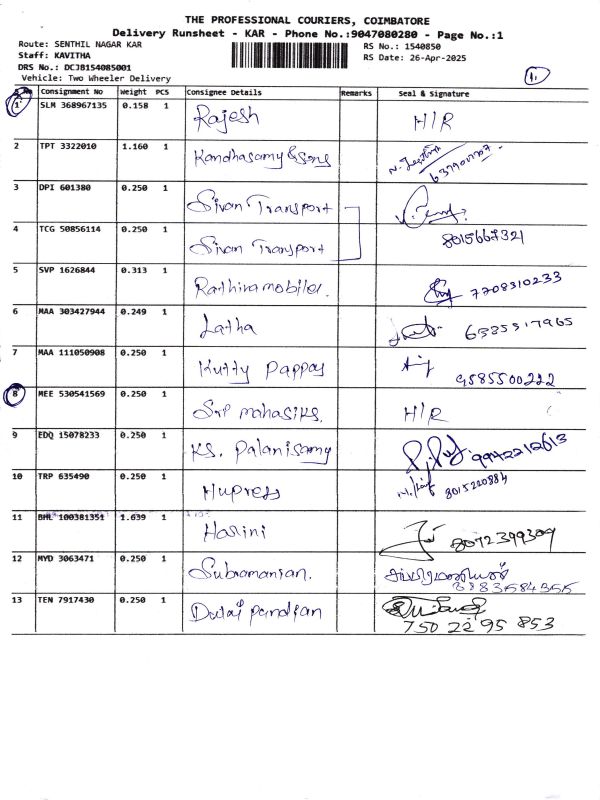 THE PROFESSIONAL COURIERS, COIMBATORE
Delivery Runsheet - KAR - Phone No.:9047080280 - Page No.:1
Route: SENTHIL NAGAR KAR
RS No.: 1540850
Staff: KAVITHA
RS Date: 26-Apr-2025
DRS No.: DCJ8154085001
Vehicle: Two Wheeler Delivery
1.
Consignment No Weight PCS Consignee Details Remarks Seal & Signature
1 SLM 368967135 0.158 1 Rajesh H/R
2 TPT 3322010 1.160 1 Kandhasamy & Sons
3 DPI 601380 0.250 1 Sivan Transport
4 TCG 50856114 0.250 1 Sivan Transport 8015667321
5 SVP 1626844 0.313 1 Rathira mobiles. 7708310233
6 MAA 303427944 0.249 1 Latha 6385517965
7 MAA 111050908 0.250 1 Kutty Pappay 9585500222
8 MEE 530541569 0.250 1 H/R
9 EDQ 15078233 0.250 1 KS. Palanisamy 9942212613
10 TRP 635490 0.250 1 Hupress 8015220884
11 BHL 100381351 1.639 1 Harini 8072399309
12 MYD 3063471 0.250 1 Subramanian. சுப்பிரமணியன்
8883584355
13 TEN 7917430 0.250 1 Durai pandian
750 22 95 853